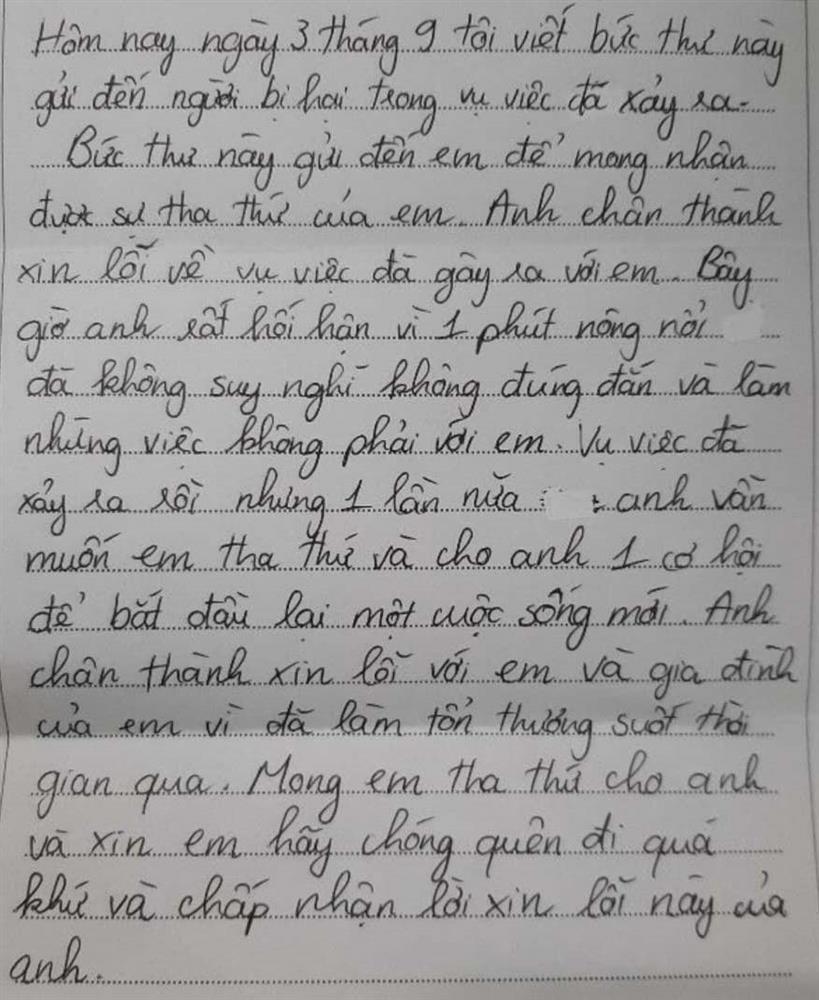 Hôm nay ngày 3 tháng 9 tôi viết bức thư này
gửi đến người bị hại trong vụ việc đã xảy ra.
Bức thư này gửi đến em để mong nhận
được sự tha thứ của em. Anh chân thành
xin lỗi về vụ việc đã gây ra với em. Bây
giờ anh rất hối hận vì 1 phút nông nổi
đã không suy nghĩ không đúng đắn và làm
những việc không phải với em. Vụ việc đã
xảy ra rồi nhưng 1 lần nữa anh vẫn
muốn em tha thứ và cho anh 1 cơ hội
để bắt đầu lại một cuộc sống mới. Anh
chân thành xin lỗi với em và gia đình
của em vì đã làm tổn thương suốt thời
gian qua. Mong em tha thứ cho anh
và xin em hãy chóng quên đi quá
khứ và chấp nhận lời xin lỗi này của
anh.